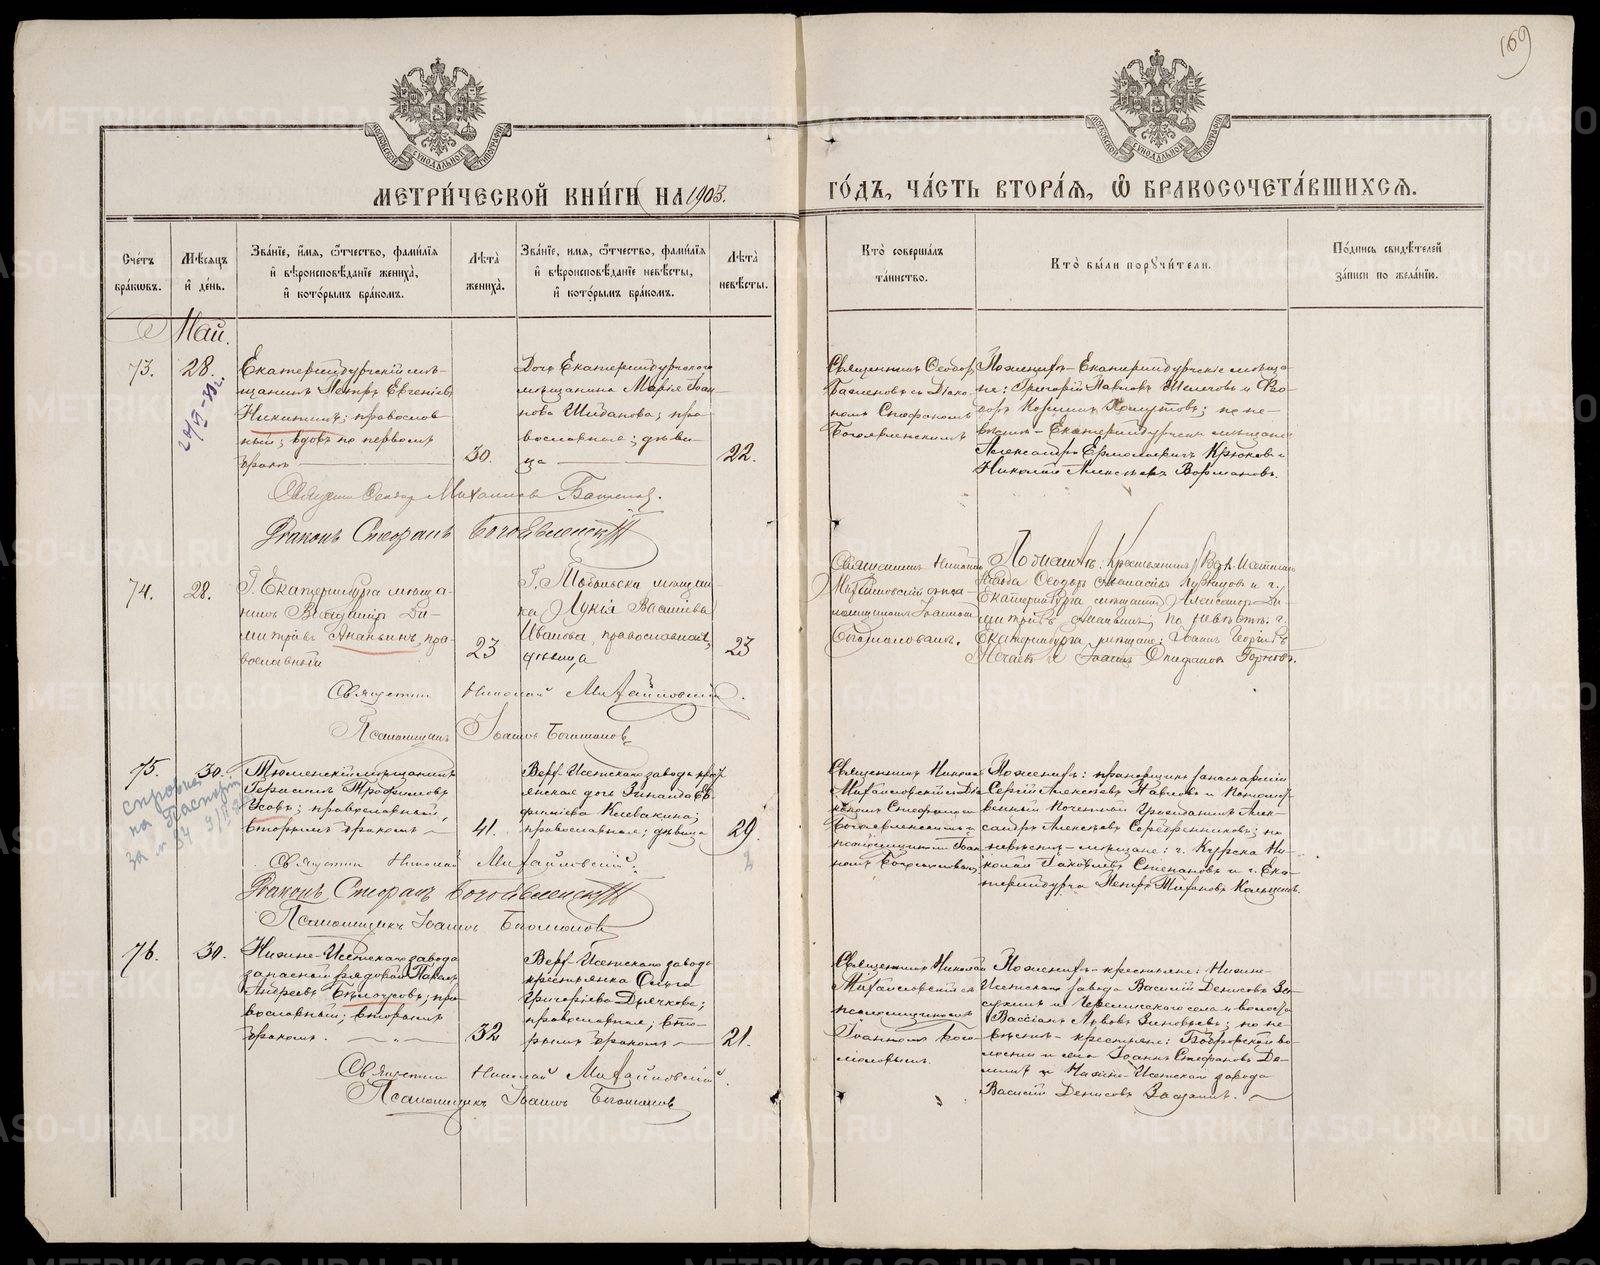 169
МЕТРИ́ЧЕСКОЙ КНИ́ГИ НА 1903.
ГО́ДЪ, ЧА́СТЬ ВТОРА́Я, Ѡ БРАКОСОЧЕТА́ВШИХСЯ.
Сче́тъ бра́кѡвъ.
Мѣсяцъ и де́нь.
Зва́нїе, и́мя, ѻ҆́тчество, фами́лїя
и҆ вѣроисповѣ́данїе жениха̀,
и҆ кото́рымъ бра́комъ.
Лѣта̀ жениха̀.
Зва́нїе, и́мя, ѻ҆́тчество, фами́лїя
и҆ вѣроисповѣ́данїе невѣ́сты,
и҆ кото́рымъ бра́комъ.
Лѣта̀ невѣ́сты.
Кто̀ соверша́лъ
та́инство.
Кто̀ бы́ли пор​ꙋчи́тели.
По́дпись свидѣ́телей
за́писи по жела́нїю.
Май.
73.
28.
Екатеринбургскій мѣ-
щанинъ Петръ Евгеніевъ
Никитинъ; православ-
ный; вдовъ по первомъ
бракѣ
30.
Дочь Екатеринбургскаго
мѣщанина Марія Іоан-
нова Шибанова; пра-
вославная; дѣви-
ца
22.
Священникъ Ѳеодоръ
съ Діако-
номъ Стефаномъ
Богоявленскимъ
По женихѣ - Екатеринбургскіе мѣща-
не: Григорій Павловъ
по не-
вѣстѣ - Екатеринбургскіе мѣщане
Александръ Ермолаевичъ Крюковъ и
Николай Алексѣевъ
Священникъ Ѳеодоръ Михаиловъ
Діаконъ Стефанъ Богоявленскій
74.
28.
Г. Екатеринбурга мѣща-
нинъ Владиміръ Ди-
митріевъ Ананьинъ, пра-
вославный
23
Г. Тобольска мѣщан-
ка Лукія Васильева
Иванова, православная,
дѣвица
23
Священникъ Николай
Михайловскій съ пса-
ломщикомъ Іоанномъ
Богомоловымъ.
По женихѣ: крестьянинъ Верх. Исетскаго
завода Ѳеодоръ Аѳанасьевъ Кузнецовъ и г.
Екатеринбурга мѣщанинъ Александръ Ди-
митріевъ Ананьинъ; по невѣстѣ: г.
Екатеринбурга мѣщане: Іоаннъ Георгіевъ
и Іоаннъ
Священникъ Николай Михайловскій.
Псаломщикъ Іоаннъ Богомоловъ
75.
30.
справка
на паспортъ
за № 84
Тюменскій мѣщанинъ
Герасимъ Трофимовъ
Усовъ; православный,
вторымъ бракомъ
41.
Верх-Исетскаго завода кресть-
янская дочь Зинаида Ев-
фиміева Клевакина;
православная; дѣвица
29.
Священникъ Николай
Михайловскій съ Діа-
кономъ Стефаномъ
Богоявленскимъ и
псаломщикомъ Іоан-
номъ Богомоловымъ
По женихѣ: прапорщикъ запаса арміи
Сергій Алексѣевъ Павловъ и Потомст-
венный Почетный Гражданинъ Алек-
сандръ Алексѣевъ Серебренниковъ; по
невѣстѣ - мѣщане: г. Курска Ни-
колай Яковлевъ Степановъ и г. Ека-
теринбурга Петръ
Священникъ Николай Михайловскій.
Діаконъ Стефанъ Богоявленскій
Псаломщикъ Іоаннъ Богомоловъ
76.
30.
Нижне-Исетскаго завода
запасный рядовой Павелъ
Андреевъ Бѣлоусовъ; пра-
вославный; вторымъ
бракомъ.
32
Верх-Исетскаго завода
крестьянка Ольга
Григоріева Дьячкова;
православная; вто-
рымъ бракомъ
21.
Священникъ Николай
Михайловскій съ
псаломщикомъ
Іоанномъ Бого-
моловымъ.
По женихѣ - крестьяне: Нижне-
Исетскаго завода Василій Денисовъ За-
и
Вассіанъ Львовъ Зиновьевъ; по не-
вѣстѣ - крестьяне: Бобровской во-
лости и села Іоаннъ Стефановъ Де-
и Нижне-Исетскаго завода
Василій Денисовъ
Священникъ Николай Михайловскій.
Псаломщикъ Іоаннъ Богомоловъ
METRIKI.GASO-URAL.RU